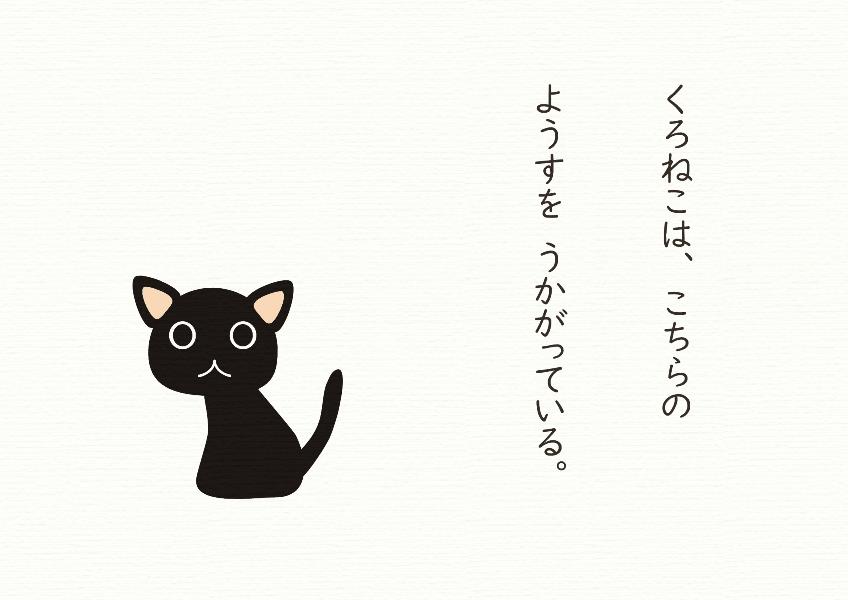 くろねこは、 こちらの
ようすを うかがっている。